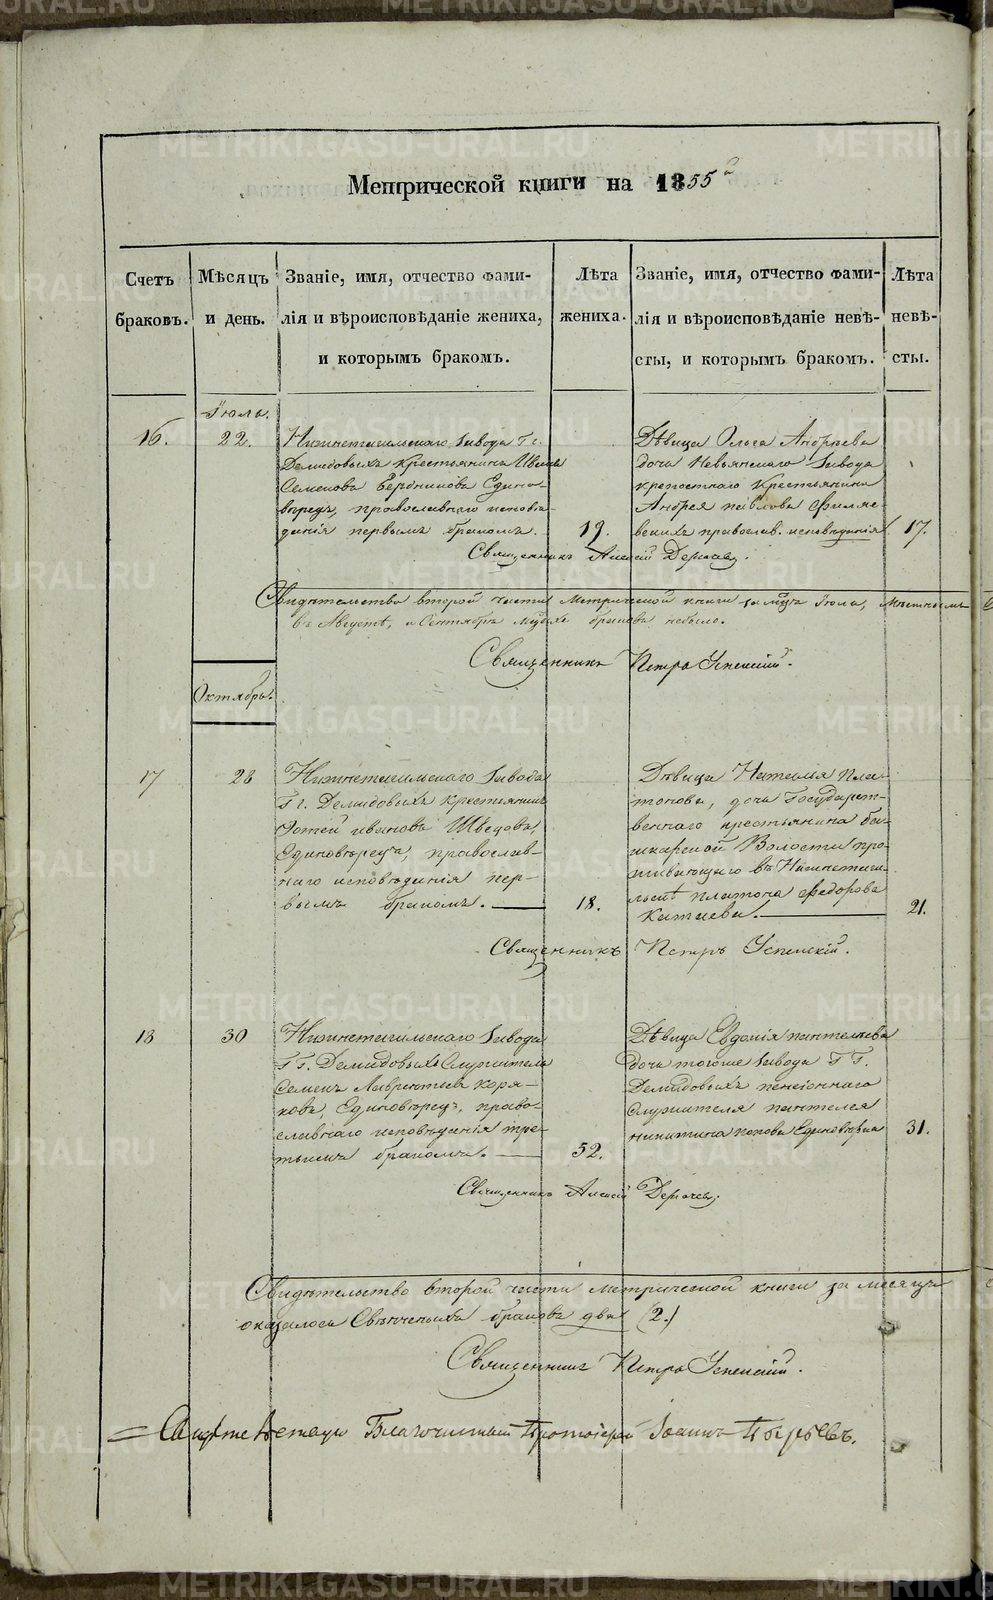 Метрической книги на 1855й
Счетъ браковъ.
Мѣсяцъ и день.
Званіе, имя, отчество фами-
лія и вѣроисповѣданіе жениха,
и которымъ бракомъ.
Лѣта жениха.
Званіе, имя, отчество фами-
лія и вѣроисповѣданіе невѣ-
сты, и которымъ бракомъ.
Лѣта невѣ-
сты.
Іюль.
16.
22.
Нижнетагильскаго Завода Гг.
Демидовыхъ крестьянинъ Иванъ
Семеновъ Бердниковъ Едино-
верецъ, православнаго исповѣ-
данія первымъ бракомъ.
19.
Дѣвица Ольга Андрѣева
дочь Невьянскаго Завода
крепостнаго крестьянина
Андрея павлова
православ. исповѣданія
17.
Священникъ Алексѣй
Свидѣтельство второй части Метрической книги за мцъ Іюль,
въ Августѣ, и Сентябрѣ браковъ небыло.
Священникъ Петръ Успенскій.
Октябрь.
17
28
Нижнетагильскаго Завода
Гг. Демидовыхъ крестьянинъ
ивановъ Шведовъ,
Единоверецъ, православ-
наго исповѣданія пер-
вымъ бракомъ.
18.
Дѣвица Наталія Пла-
тонова, дочь Государст-
веннаго крестьянина
Волости про-
живающаго въ Нижнетаги-
льскѣ платона Федорова
Катаева.
21.
Священникъ Петръ Успенскій.
18
30
Нижнетагильскаго Завода
ГГ. Демидовыхъ Служитель
Семенъ Лаврентьевъ Коря-
ковъ, Единоверецъ, право-
славнаго исповѣданія тре-
тьимъ бракомъ.
52.
Дѣвица Евдокія пантелѣева
дочь тогоже Завода ГГ.
Демидовыхъ пенсіоннаго
Служителя пантелея
никитина попова Единоверка
31.
Священникъ Алексѣй
Свидѣтельство второй части Метрической книги за месяцъ
оказалось браковъ два (2.)
Священникъ Петръ Успенскій.
Свидѣтельствовалъ Благочинный Протоіерей Іоаннъ
METRIKI.GASO-URAL.RU